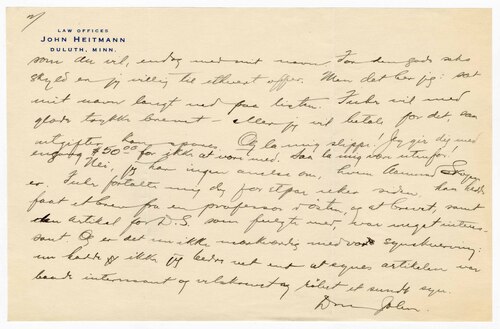 2/
LAW OFFICES
JOHN HEITMANN
DULUTH, MINN.
som du vil, endog med mit navn. For den gode saks
skyld er jeg villig til ethvert offer. Men det ber jeg: sæt
mit navn langt ned paa listen. Fuhr vil med
glæde trykke brevet – eller jeg vil betale for det, saa
utgifter kan spares. Og la mig slippe! Jeg gir dig med
engang $50.00 for ikke at være med. Saa la mig være utenfor!
Nei, jeg har ingen anelse om, hvem
er. Fuhr fortalte mig dag for et par uker siden, han hadde
faat et brev fra en professor og at brevet, samt
en artikel for D.S. som fulgte med, var meget interes-
sant. Og er det en ikke med vor synskverving:
nu hadde jeg ikke jeg bedre vet end at synes artikelen var
baade interessant og velskrevet og røbet et sundt syn.
Din John.